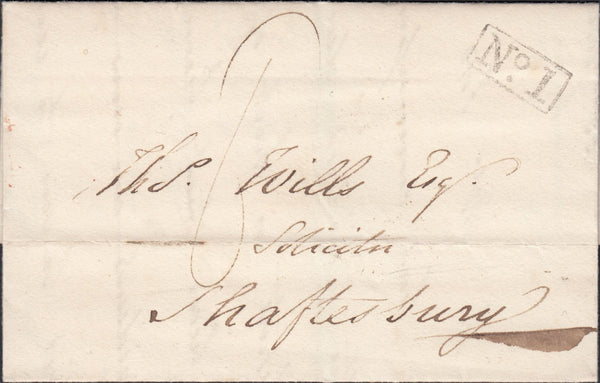 No. 1
Thos. Wills Esq.
Solicitor
Shaftesbury